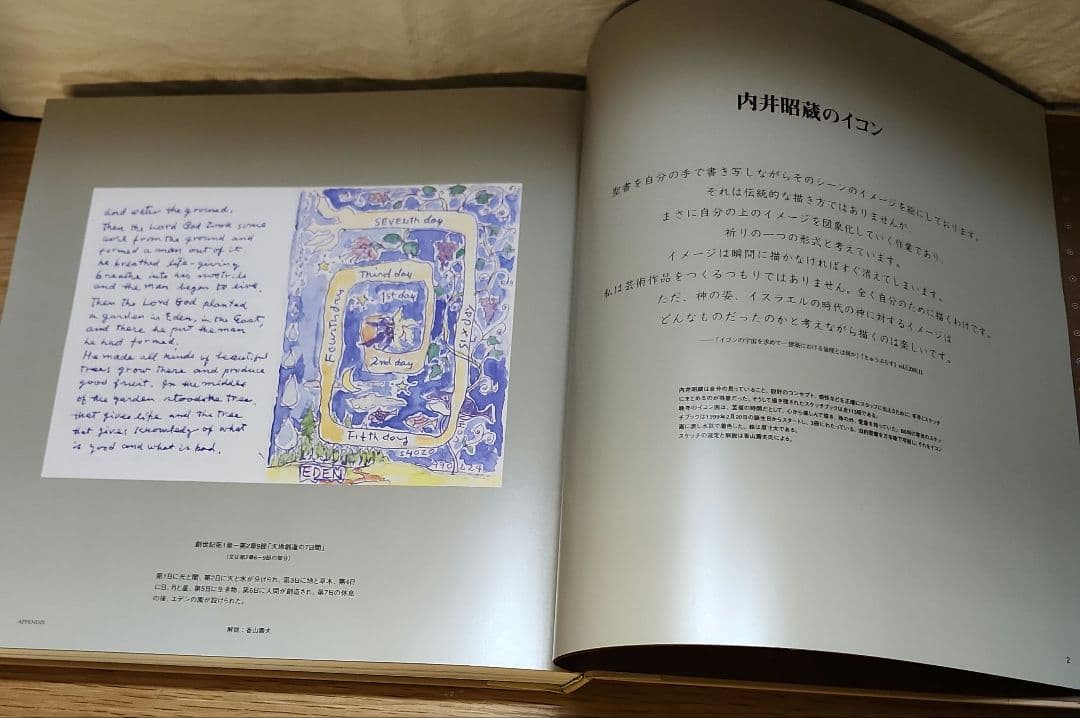 and water the ground.
Then the Lord God took some
soil from the ground and
formed a man out of it.
he breathed life-giving
breathe into his nostrils
and the man began to live.
Then the Lord God planted
a garden in Eden, in the East,
and there he put the man
he had formed.
He made all kinds of beautiful
trees grow there and produce
good fruit. In the middle
of the garden stood the tree
that give life and the tree
that give knowledge of what
is good and what is bad.
SEVENTH day
Third day
1st day
Fourth day
2nd day
SIX day
Fifth day
EDEN
創世記第1章−第2章9節「天地創造の7日間」
(文は第2章6−9節の部分)
第1日に光と闇、第2日に天と水が分けられ、第3日に地と草木、第4日
に日、月と星、第5日に生き物、第6日に人間が創造され、第7日の休息
の後、エデンの園が設けられた。
解説：香山壽夫
APPENDIX
内井昭蔵のイコン
聖書を自分の手で書き写しながらそのシーンのイメージを絵にしております。
それは伝統的な描き方ではありませんが、
まさに自分の上のイメージを図象化していく作業であり、
祈りの一つの形式と考えています。
イメージは瞬間に描かなければすぐ消えてしまいます。
私は芸術作品をつくるつもりではありません。全く自分のために描くわけです。
ただ、神の姿、イスラエルの時代の神に対するイメージは
どんなものだったのかと考えながら描くのは楽しいです。
内井昭蔵は自分の思っていること、設計のコンセプト、感性などを正確にスタッフに伝えるために、手帳とスケッチ
スケッチの選定と解説は香山壽夫氏による。
2